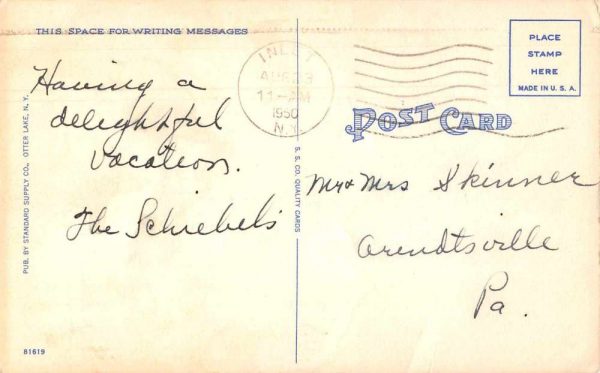 THIS SPACE FOR WRITING MESSAGES
Having a
delightful
vacation.
The Schiebels
INLET
AUG 23
11-AM
1950
N.Y.
PLACE
STAMP
HERE
MADE IN U. S. A.
POST CARD
Mr & Mrs Skinner
Arendtsville
Pa.
PUB. BY STANDARD SUPPLY CO., OTTER LAKE, N. Y.
S. S. CO. QUALITY CARDS
81619